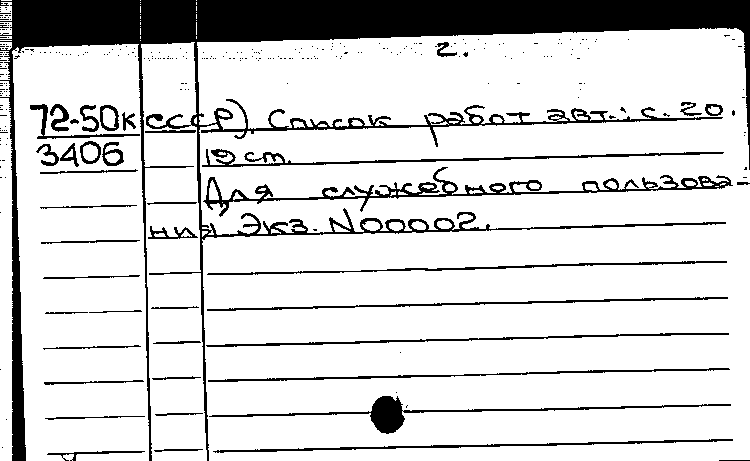 2.
72-50к СССР). Список работ авт.: с. 20.
3406 19 ст.
Для служебного пользова-
ния Экз. N00002.